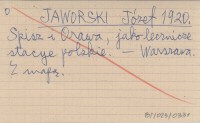 JAWORSKI Józef 1920.
Spisz i Orawa, jako lecznicze
stacye polskie. — Warszawa.
Z mapą.